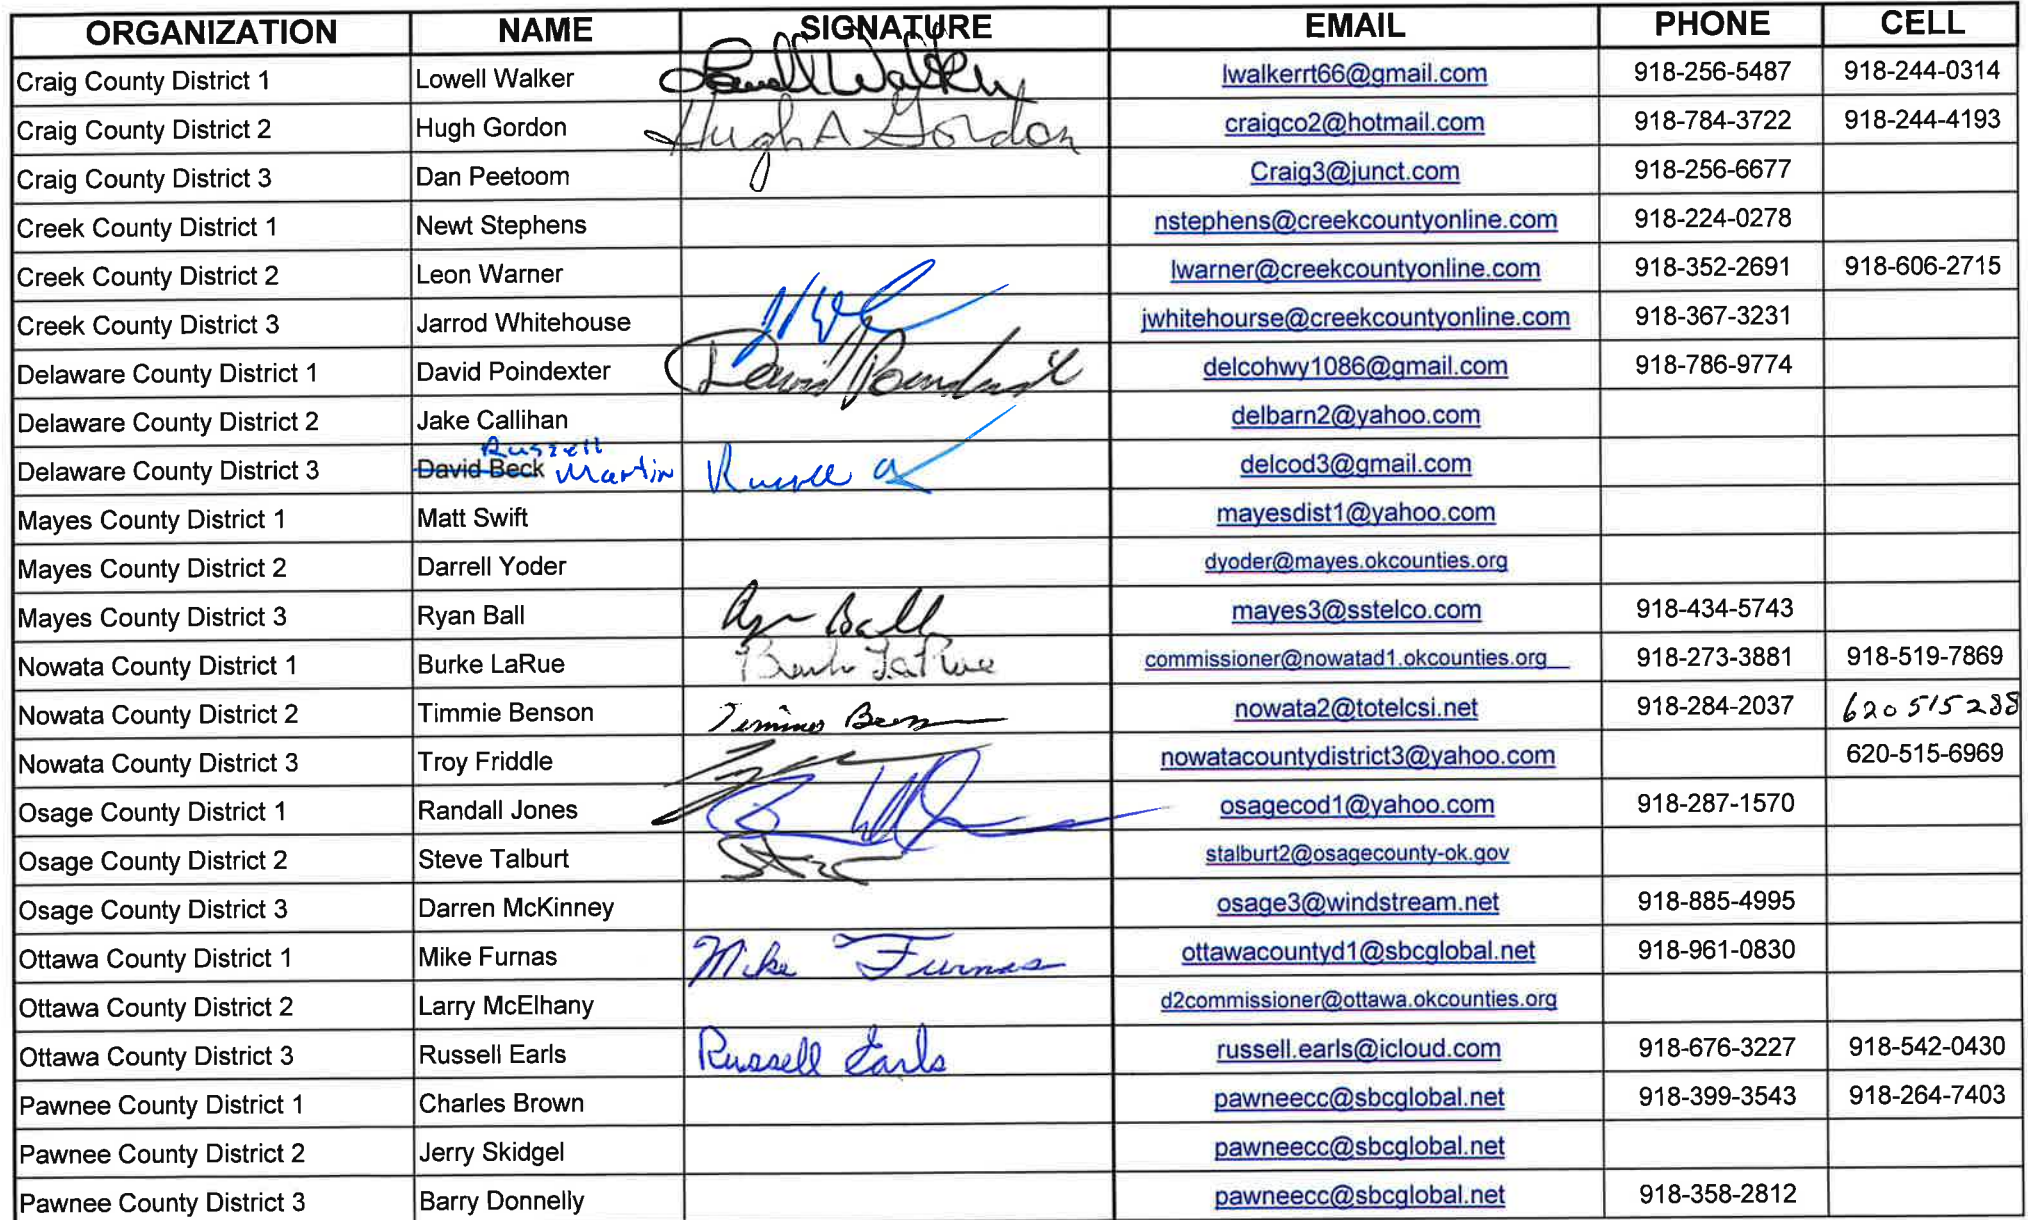 ORGANIZATION NAME SIGNATURE EMAIL PHONE CELL
Craig County District 1 Lowell Walker Lowell Walker lwalkerrt66@gmail.com 918-256-5487 918-244-0314
Craig County District 2 Hugh Gordon Hugh A Gordon craigco2@hotmail.com 918-784-3722 918-244-4193
Craig County District 3 Dan Peetoom Craig3@junct.com 918-256-6677
Creek County District 1 Newt Stephens nstephens@creekcountyonline.com 918-224-0278
Creek County District 2 Leon Warner lwarner@creekcountyonline.com 918-352-2691 918-606-2715
Creek County District 3 Jarrod Whitehouse jwhitehourse@creekcountyonline.com 918-367-3231
Delaware County District 1 David Poindexter David Poindexter delcohwy1086@gmail.com 918-786-9774
Delaware County District 2 Jake Callihan delbarn2@yahoo.com
Russell
Delaware County District 3 David Beck Martin Russell delcod3@gmail.com
Mayes County District 1 Matt Swift mayesdist1@yahoo.com
Mayes County District 2 Darrell Yoder dyoder@mayes.okcounties.org
Mayes County District 3 Ryan Ball Ryan Ball mayes3@sstelco.com 918-434-5743
Nowata County District 1 Burke LaRue Burke LaRue commissioner@nowatad1.okcounties.org 918-273-3881 918-519-7869
Nowata County District 2 Timmie Benson Timmie Benson nowata2@totelcsi.net 918-284-2037 620 515 238
Nowata County District 3 Troy Friddle nowatacountydistrict3@yahoo.com 620-515-6969
Osage County District 1 Randall Jones osagecod1@yahoo.com 918-287-1570
Osage County District 2 Steve Talburt Steve stalburt2@osagecounty-ok.gov
Osage County District 3 Darren McKinney osage3@windstream.net 918-885-4995
Ottawa County District 1 Mike Furnas Mike Furnas ottawacountyd1@sbcglobal.net 918-961-0830
Ottawa County District 2 Larry McElhany d2commissioner@ottawa.okcounties.org
Ottawa County District 3 Russell Earls Russell Earls russell.earls@icloud.com 918-676-3227 918-542-0430
Pawnee County District 1 Charles Brown pawneecc@sbcglobal.net 918-399-3543 918-264-7403
Pawnee County District 2 Jerry Skidgel pawneecc@sbcglobal.net
Pawnee County District 3 Barry Donnelly pawneecc@sbcglobal.net 918-358-2812